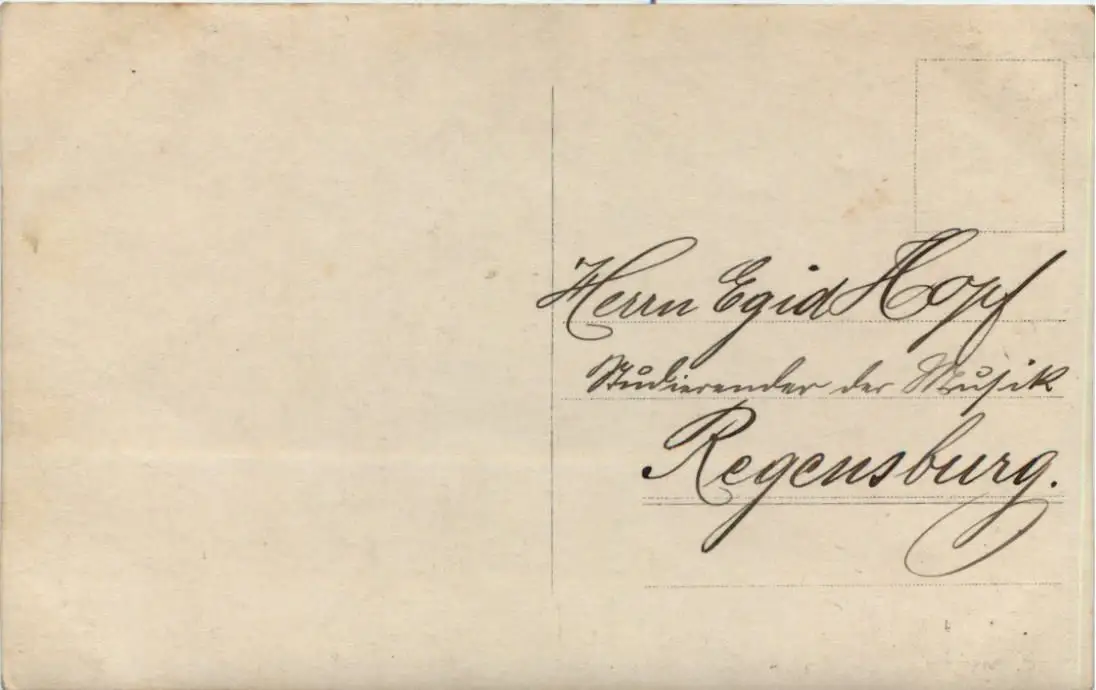 Herrn Egid Hopf
Studierender der Musik
Regensburg.